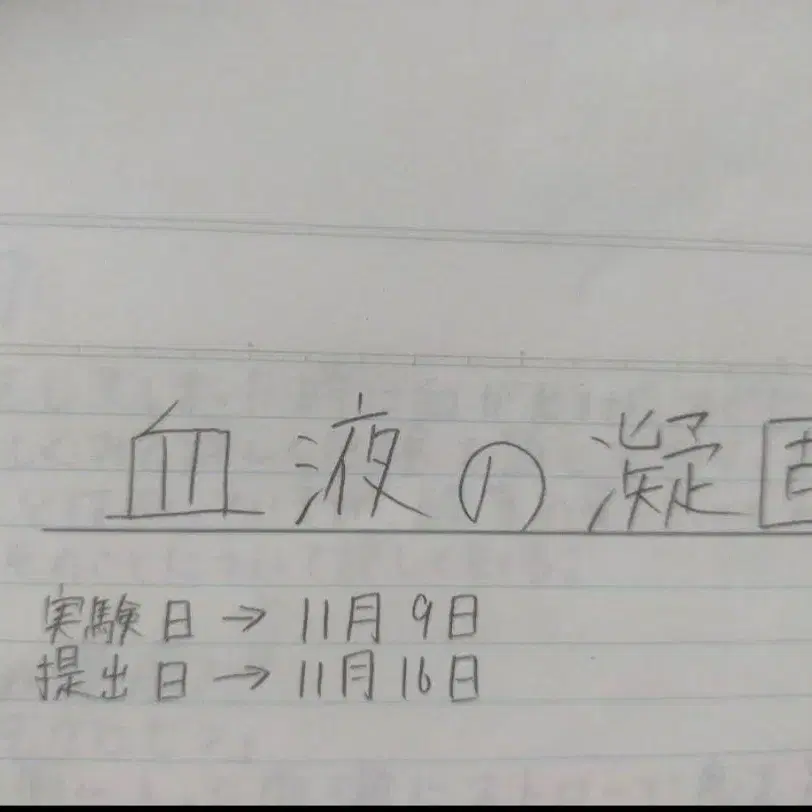 血液の凝固
実験日 → 11月9日
提出日 → 11月16日